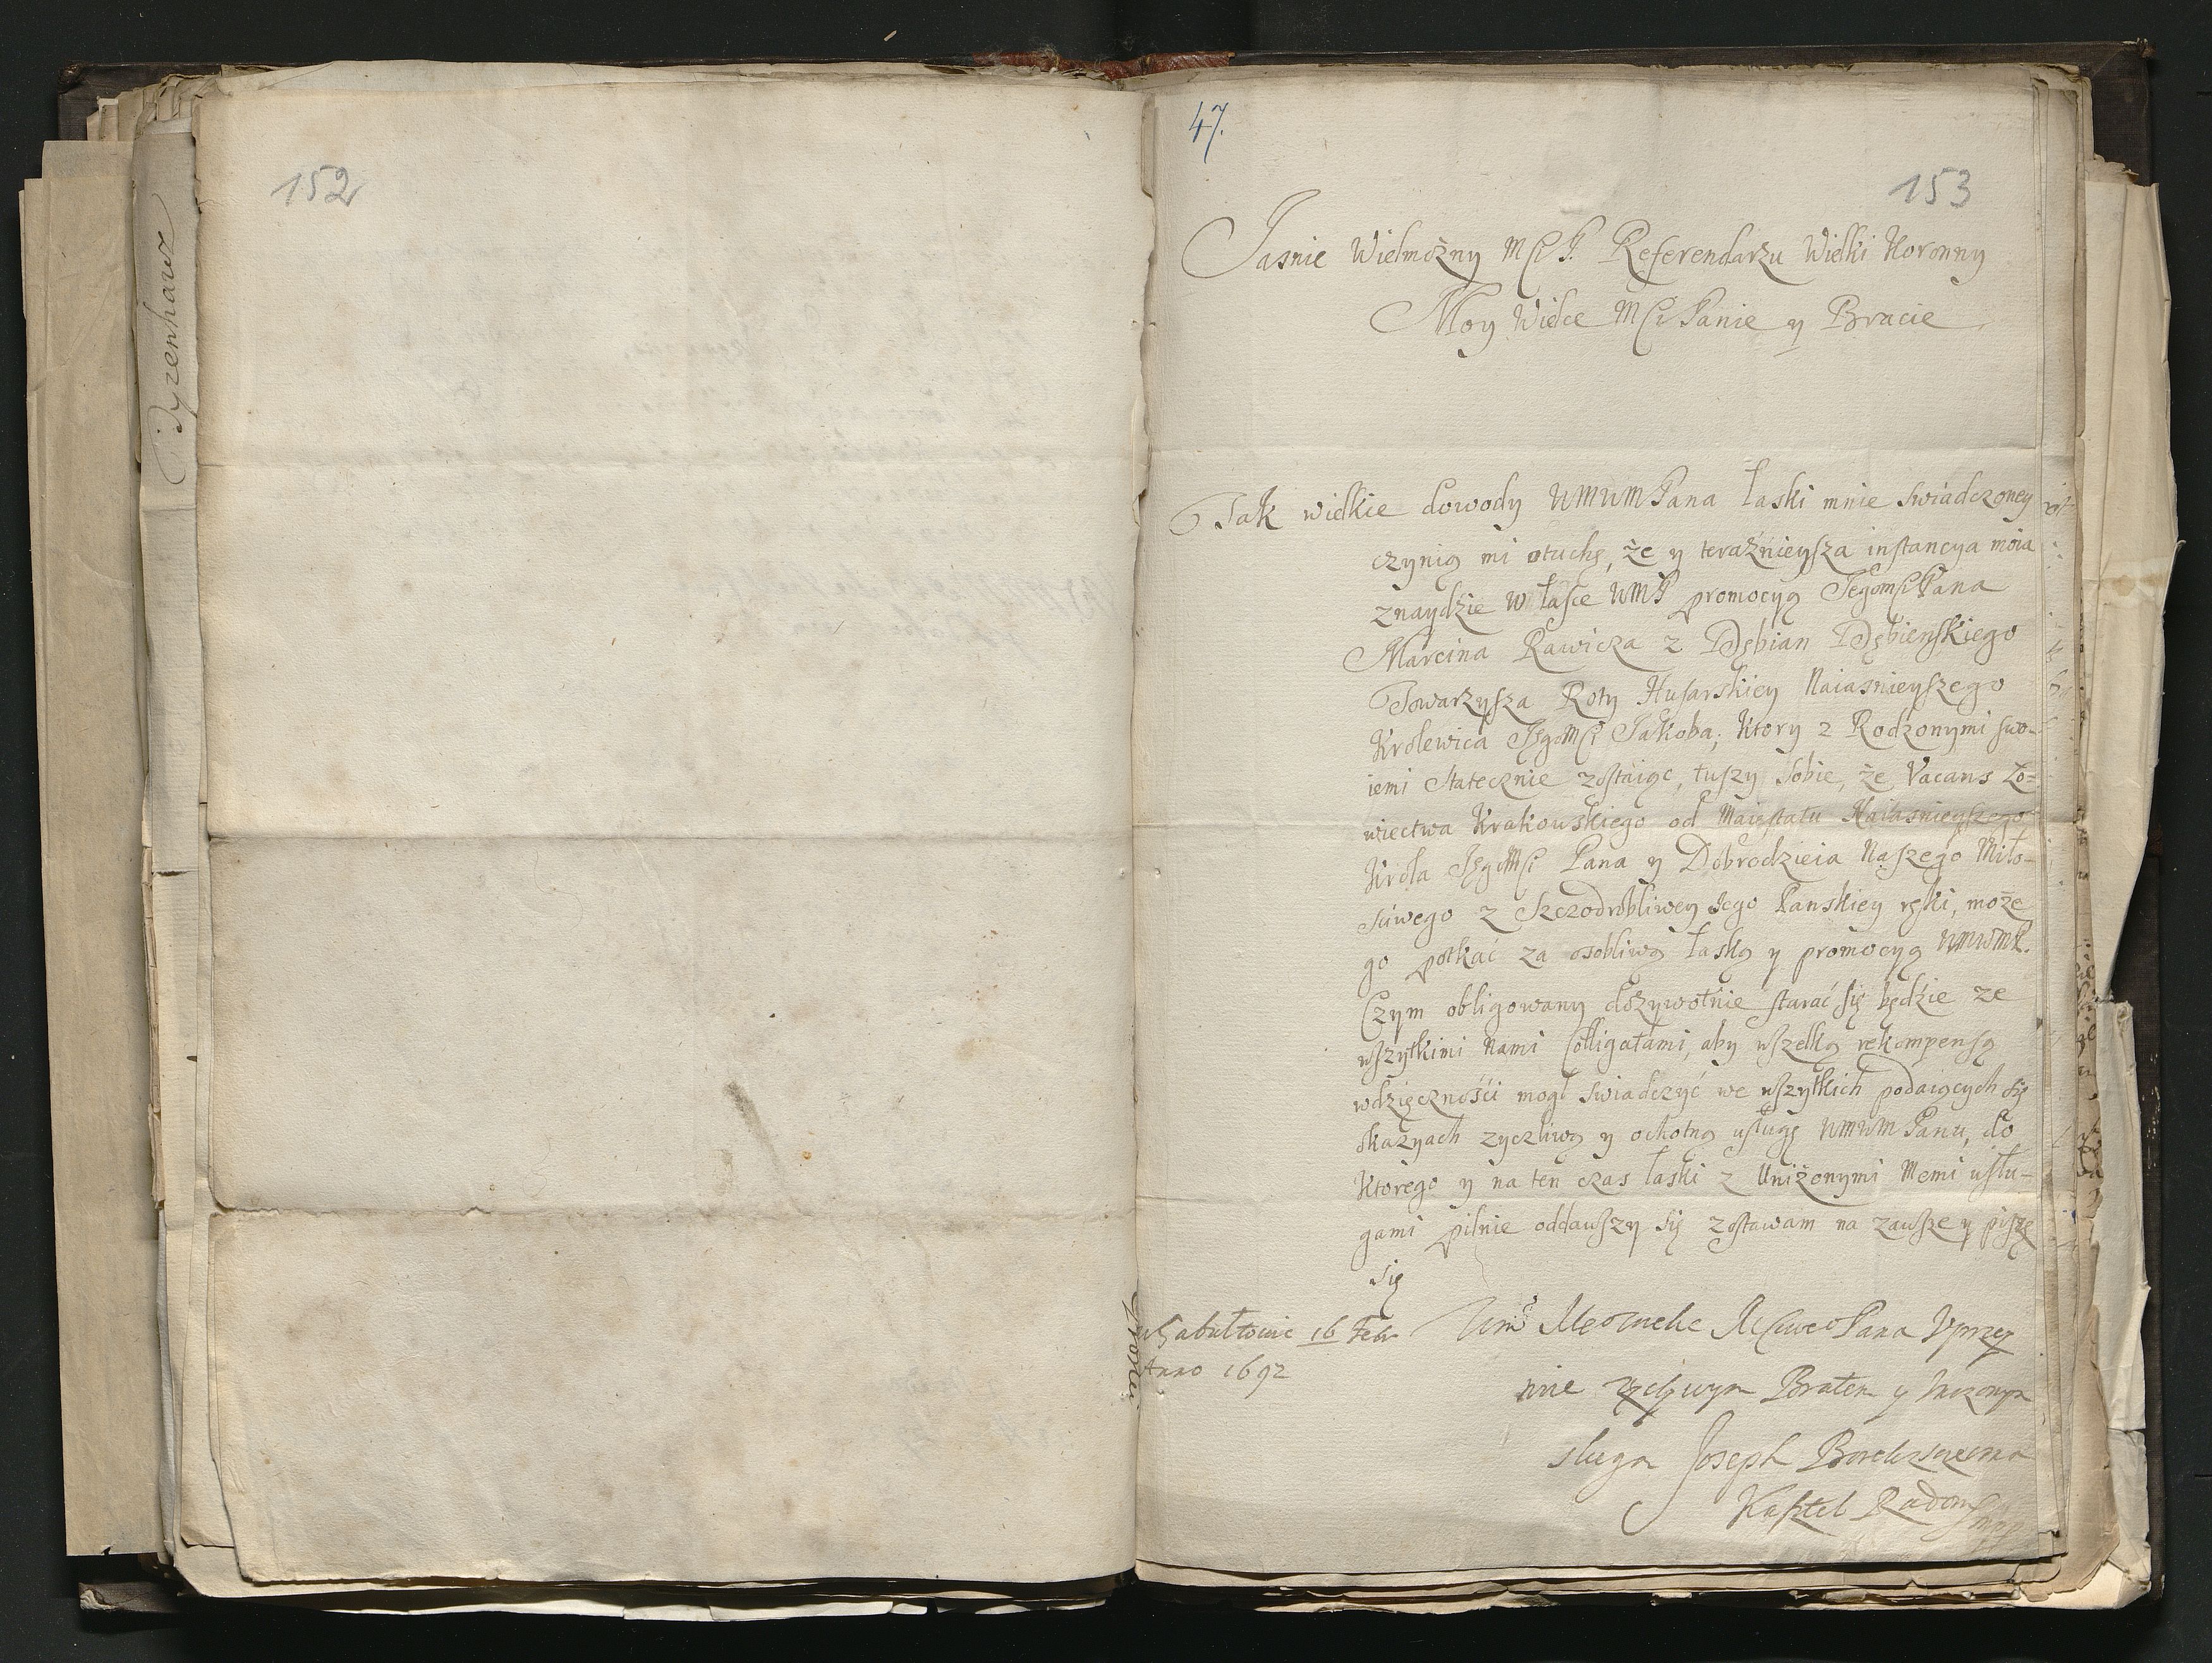 152
Tyzenhauz
47.
153
Jasnie Wielmożny MCi P. Referendarzu Wielki Koronny
Moy Wielce MCi Panie y Bracie
Tak wielkie dowody WMWMPana łaski mnie swiadczoney
czynią mi otuchę, że y teraźnieysza instancya moia
znaydzie w łasce WMP promocyą JegomCi Pana
Marcina Rawicza z Dębian Dębienskiego
Towarzysza Roty Husarskiey Naiasnieyszego
Krolewica JegoMCi Jakoba, Ktory z Rodzonymi swo-
iemi Statecznie zostaiąc, tuszy sobie, że Vacans Ło-
wiectwa Krakowskiego od Maiestatu Naiasnieyszego
Krola JegoMCi Pana y Dobrodzieia Naszego Miło-
sciwego z Szczodrobliwey Jego Panskiey ręki, może
go potkać za osobliwą łaską y promocyą WMWMP.
Czym obligowany dożywotnie starać się będzie ze
wszytkimi Nami Colligatami, aby wszelką rekompensą
wdzięczności mogł swiadczyć we wszytkich podaiących się
okazyach zyczliwą y ochotną usługę WMWMPanu, do
Ktorego y na ten czas łaski z Uniżonymi Memi usłu-
gami pilnie oddawszy się zostawam na zawsze y piszę
się
16 Febr
Anno 1692
Wm Mego Pana Vprzey
mie Bratem y
sluga Joseph
Kasztel Radomski
mpp